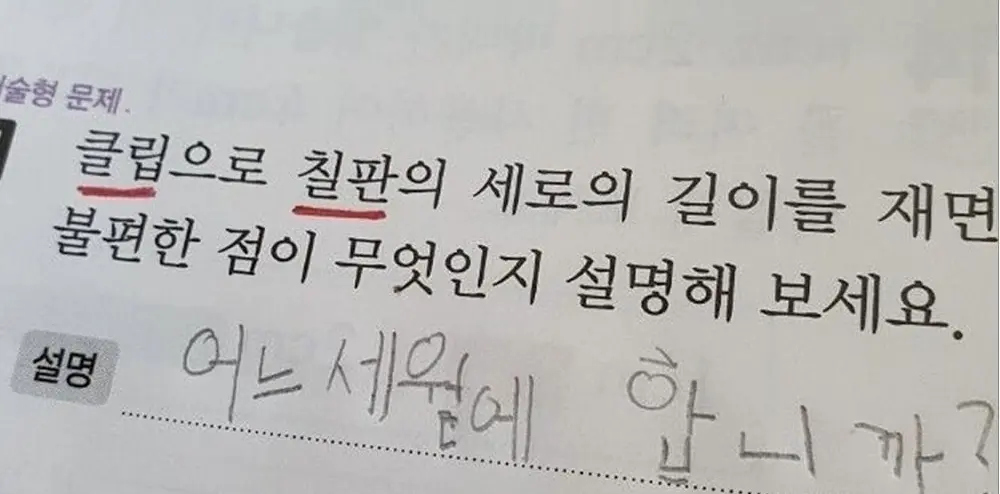 술형 문제.
클립으로 칠판의 세로의 길이를 재면
불편한 점이 무엇인지 설명해 보세요.
설명 어느세월에 합니까?